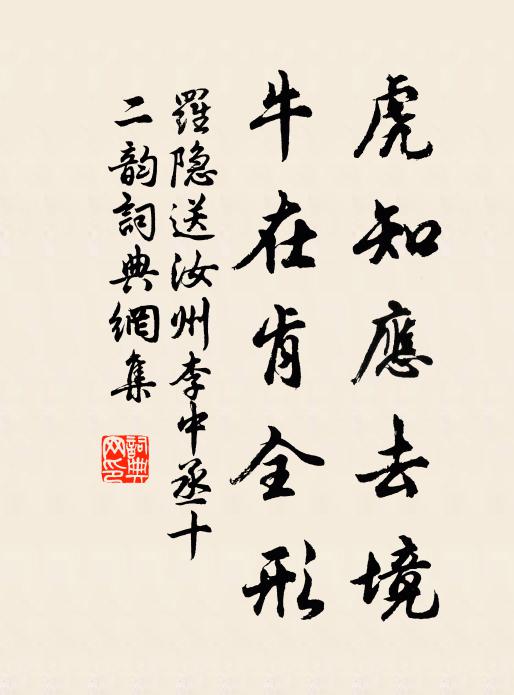 虎知應去境
牛在肯全形
羅隐送汝州李中丞十
二韵詞典網集
詞典网印